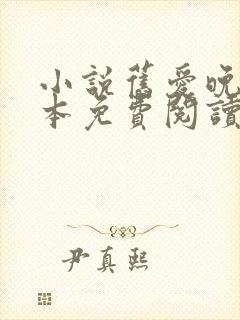 小說舊愛晚
本免費閱讀
尹真熙